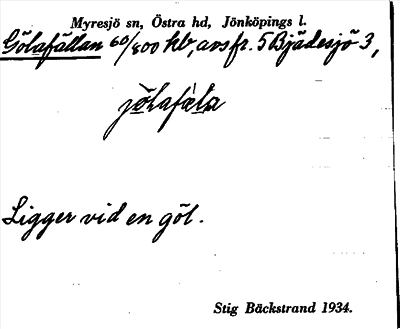 Myresjö sn, Östra hd, Jönköpings l.
Gölafällan 60/800 kb, avs fr. 5 Bjädesjö 3,
jölafæla
Ligger vid en göl.
Stig Bäckstrand 1934.